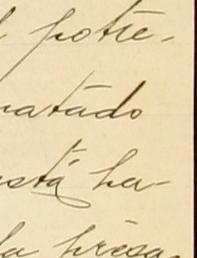 l potre-
ratado
está ha-
la presa